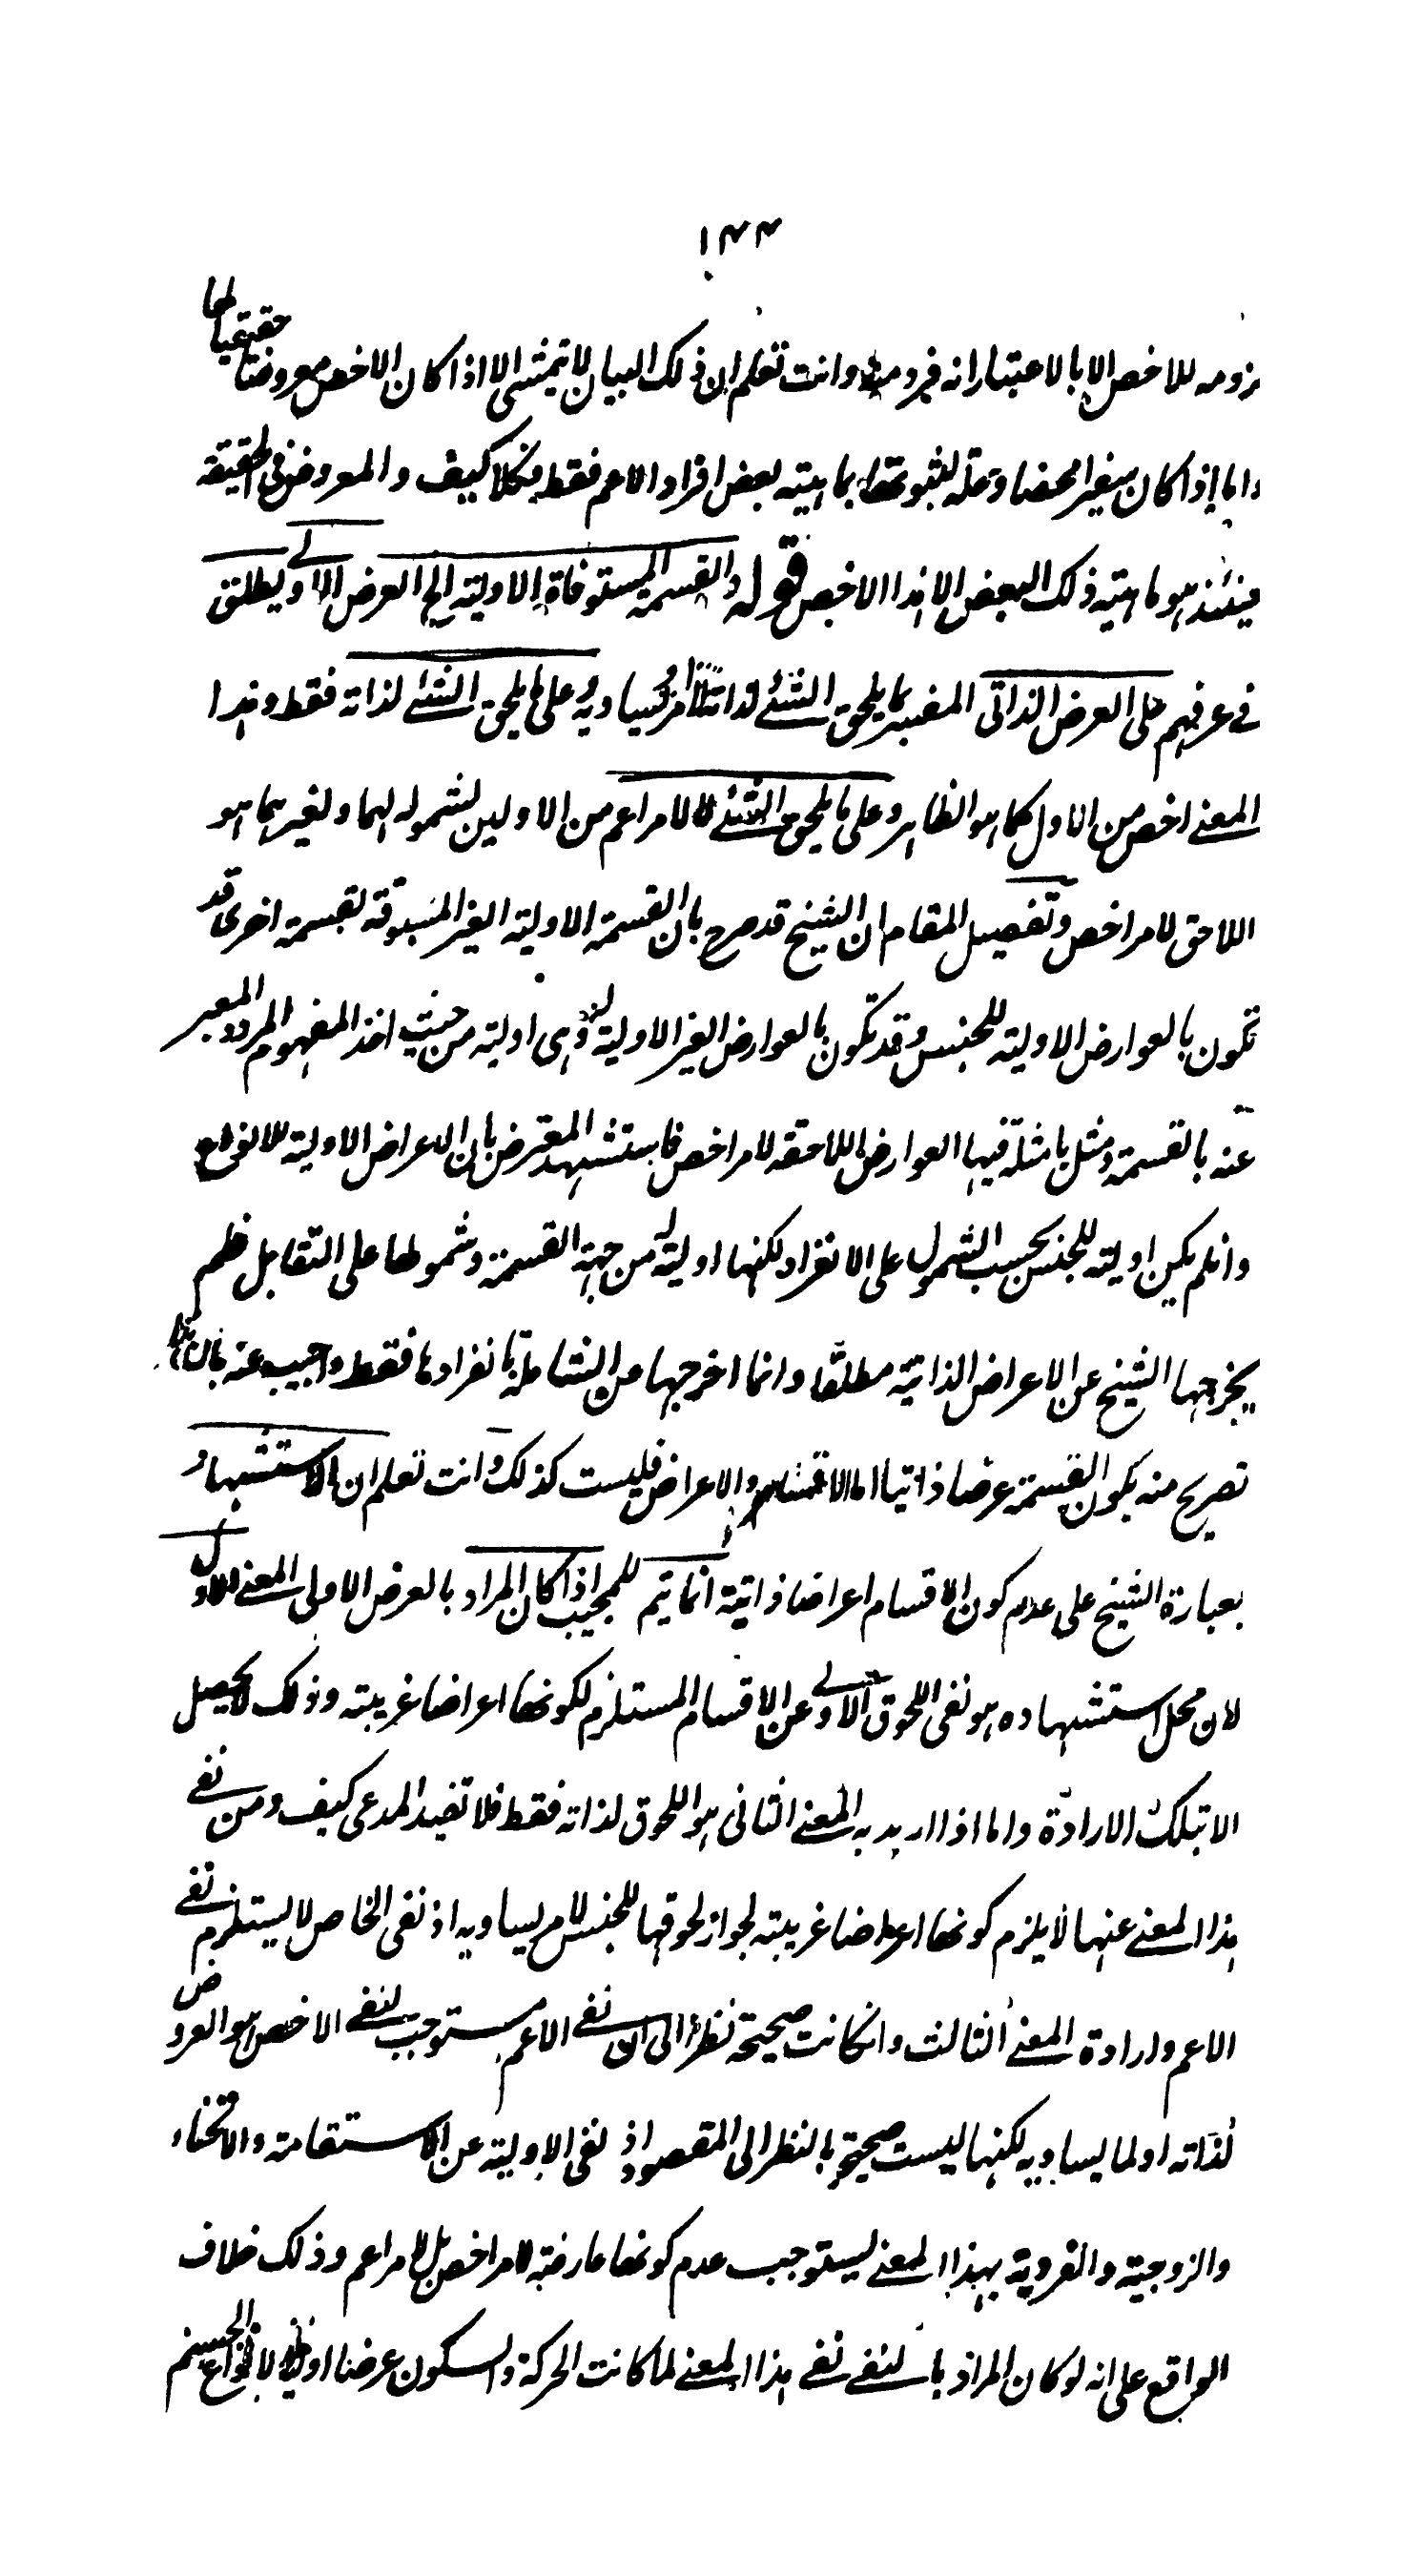 ١٣٣
لزومه للاخص الا بالاعتبار انه فرد منه وانت تعلم ان ذلك البيان لا يتمشى الا اذا كان الاخص معروضا حقيقيا لها
واما إذا كان سفيرا محضا وعلة لثبوتها بماهيته لبعض افراد الاعم فقط فكلا كيف والمعروض في الحقيقة
حينئذ هو ماهية ذلك البعض لا هذا الاخص قوله والقسمة المستوفاة الاولية الى العرض الاولى ويطلق
في عرفهم على العرض الذاتى المفسر بما يلحق الشئ لذاته او لامر يساويه وعلى ما يلحق الشئ لذاته فقط وهذا
المعنى اخص من الاول كما هو الظاهر وعلى ما يلحق الشئ لا لامر اعم من الاولين لشموله لهما ولغيرهما هو
اللاحق لامر اخص وتفصيل المقام ان الشيخ قد صرح بان القسمة الاولية الغير المسبوقة لقسمة اخرى قد
تكون بالعوارض الاولية للجنس وقد تكون بالعوارض الغير الاولية له وهى اولية من حيث اخذ المفهوم المردد المعبر
عنه بالقسمة ومثل بامثلة فيها العوارض اللاحقة لامر اخص فاستشهد المعترض بان الاعراض الاولية للانواع
وان لم يكن اولية للجنس بحسب الشمول على الانفراد لكنها اولية له من جهة القسمة وشمولها على التقابل فلم
يخرجها الشيخ عن الاعراض الذاتية مطلقا وانما اخرجها عن الشاملة بانفرادها فقط واجيب عنه بان هذا
تصريح منه بكون القسمة عرضا ذاتيا اما الاقسام والاعراض فليست كذلك وانت تعلم ان الاستشهاد
بعبارة الشيخ على عدم كون الاقسام اعراضا ذاتية انما يتم للمجيب اذا كان المراد بالعرض الاولى المعنى الاول
لان محل استشهاده هو نفى اللحوق الاولى عن الاقسام المستلزم لكونها اعراضا غريبة وذلك لا يحصل
الا بتلك الارادة واما اذا اريد به المعنى الثانى هو اللحوق لذاته فقط فلا تفيد المدعى كيف ومن نفى
هذا المعنى عنها لا يلزم كونها اعراضا غريبة لجواز لحوقها للجنس لامر يساويه اذ نفى الخاص لا يستلزم نفى
الاعم وارادة المعنى الثالث وان كانت صحيحة نظرا الى ان نفى الاعم مستوجب لنفى الاخص هو العروض
لذاته او لما يساويه لكنها ليست صحيحة بالنظر الى المقصود اذ نفى الاولية عن الاستقامة والانحناء
والزوجية والفردية بهذا المعنى ليستوجب عدم كونها عارضة لامر اخص بل لامر اعم وذلك خلاف
الواقع على انه لو كان المراد بالنفى نفى هذا المعنى لما كانت الحركة والسكون عرضا اوليا لانواع الجسم